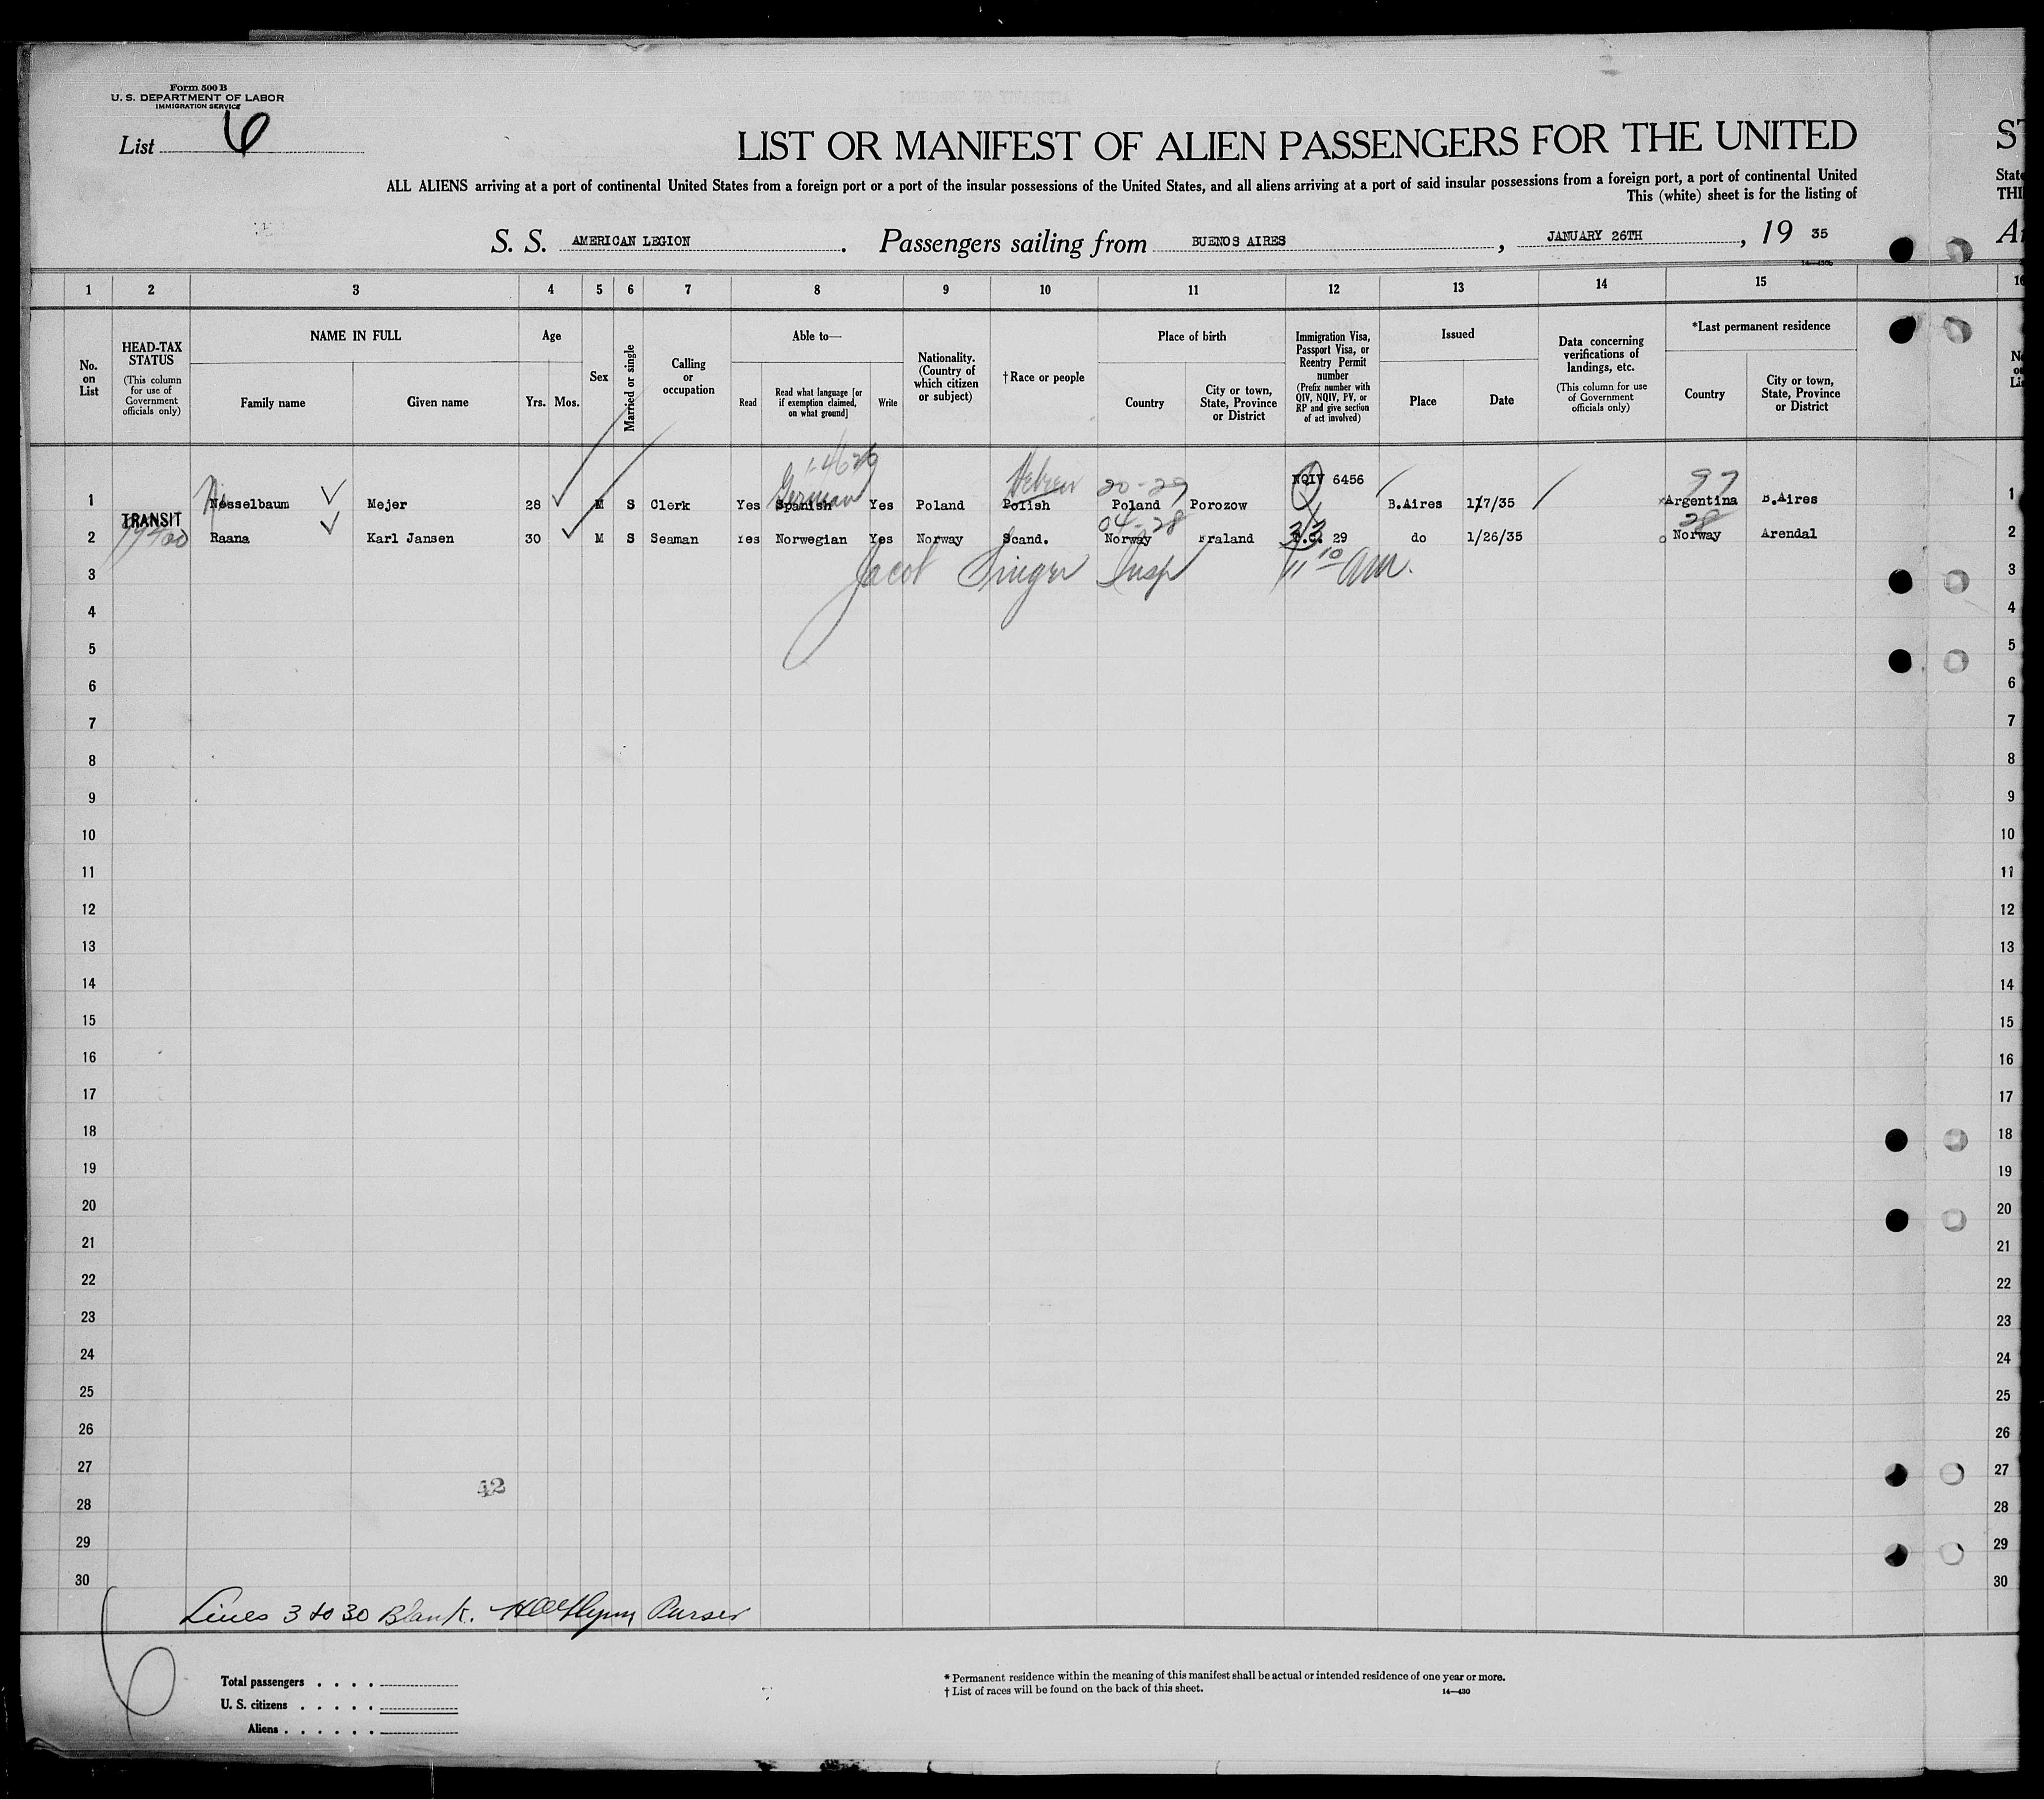 Form 500 B
U. S. DEPARTMENT OF LABOR
IMMIGRATION SERVICE
List 6
LIST OR MANIFEST OF ALIEN PASSENGERS FOR THE UNITED
ALL ALIENS arriving at a port of continental United States from a foreign port or a port of the insular possessions of the United States, and all aliens arriving at a port of said insular possessions from a foreign port, a port of continental United
This (white) sheet is for the listing of
S. S. AMERICAN LEGION. Passengers sailing from BUENOS AIRES, JANUARY 26TH, 19 35
1 2 3 4 5 6 7 8 9 10 11 12 13 14 15
No. on List
HEAD-TAX STATUS (This column for use of Government officials only)
NAME IN FULL
Family name Given name
Age
Yrs. Mos.
Sex
Married or single
Calling or occupation
Able to—
Read Read what language [or if exemption claimed, on what ground] Write
Nationality. (Country of which citizen or subject)
† Race or people
Place of birth
Country City or town, State, Province or District
Immigration Visa, Passport Visa, or Reentry Permit number (Prefix number with QIV, NQIV, PV, or RP and give section of act involved)
Issued
Place Date
Data concerning verifications of landings, etc. (This column for use of Government officials only)
*Last permanent residence
Country City or town, State, Province or District
German Hebrew 20-29 NQIV 6456 97
1 Nesselbaum Mejer 28 M S Clerk Yes Spanish Yes Poland Polish Poland Porozow B.Aires 1/7/35 Argentina B.Aires
TRANSIT 04-28 28
2 Raana Karl Jansen 30 M S Seaman Yes Norwegian Yes Norway Scand. Norway Fraland 29 do 1/26/35 Norway Arendal
Jacob Singer Insp 11 10 am.
3
4
5
6
7
8
9
10
11
12
13
14
15
16
17
18
19
20
21
22
23
24
25
26
27
42
28
29
30
Lines 3 to 30 Blank. Purser
6
Total passengers
U. S. citizens
Aliens
* Permanent residence within the meaning of this manifest shall be actual or intended residence of one year or more.
† List of races will be found on the back of this sheet.
14—430